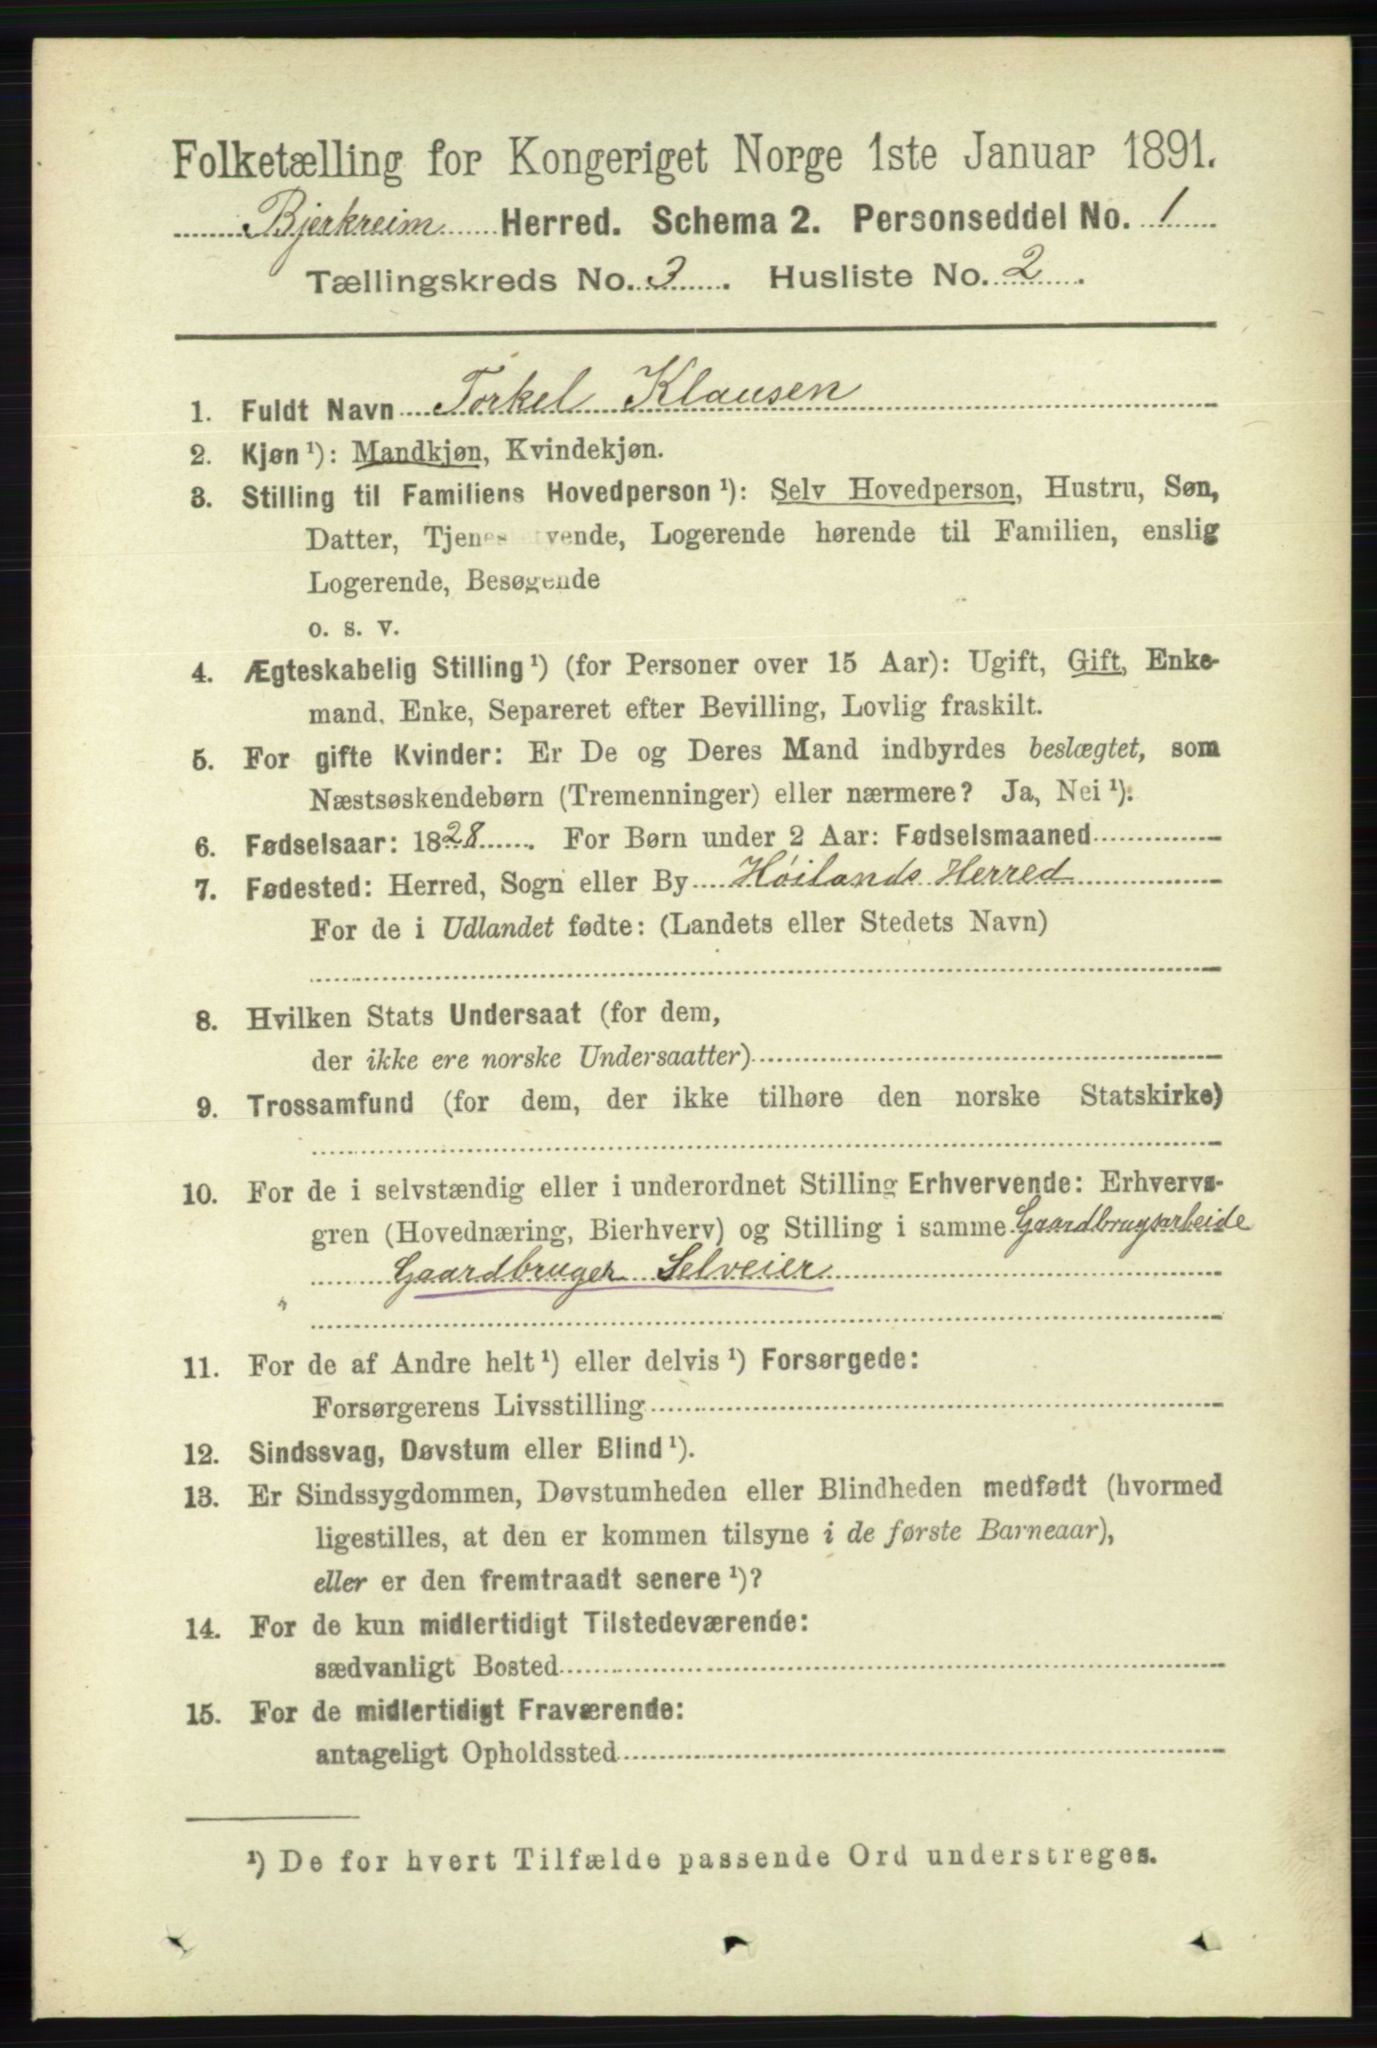 Folketælling for Kongeriget Norge 1ste Januar 1891.
Bjerkreim Herred. Schema 2. Personseddel No. 1
Tællingskreds No. 3. Husliste No. 2.
1. Fuldt Navn Torkel Klausen
2. Kjøn¹): Mandkjøn, Kvindekjøn.
3. Stilling til Familiens Hovedperson¹): Selv Hovedperson, Hustru, Søn,
Datter, Tjenes tvende, Logerende hørende til Familien, enslig
Logerende, Besøgende
o. s. v.
4. Ægteskabelig Stilling¹) (for Personer over 15 Aar): Ugift, Gift, Enke-
mand, Enke, Separeret efter Bevilling, Lovlig fraskilt.
5. For gifte Kvinder: Er De og Deres Mand indbyrdes beslægtet, som
Næstsøskendebørn (Tremenninger) eller nærmere? Ja, Nei¹).
6. Fødselsaar: 1828. For Børn under 2 Aar: Fødselsmaaned
7. Fødested: Herred, Sogn eller By Høilands Herred
For de i Udlandet fødte: (Landets eller Stedets Navn)
8. Hvilken Stats Undersaat (for dem,
der ikke ere norske Undersaatter)
9. Trossamfund (for dem, der ikke tilhøre den norske Statskirke)
10. For de i selvstændig eller i underordnet Stilling Erhvervende: Erhvervs-
gren (Hovednæring, Bierhverv) og Stilling i samme Gaardbrugsarbeide
Gaardbruger Selveier
11. For de af Andre helt¹) eller delvis¹) Forsørgede:
Forsørgerens Livsstilling
12. Sindssvag, Døvstum eller Blind¹).
13. Er Sindssygdommen, Døvstumheden eller Blindheden medfødt (hvormed
ligestilles, at den er kommen tilsyne i de første Barneaar),
eller er den fremtraadt senere¹)?
14. For de kun midlertidigt Tilstedeværende:
sædvanligt Bosted
15. For de midlertidigt Fraværende:
antageligt Opholdssted
¹) De for hvert Tilfælde passende Ord understreges.